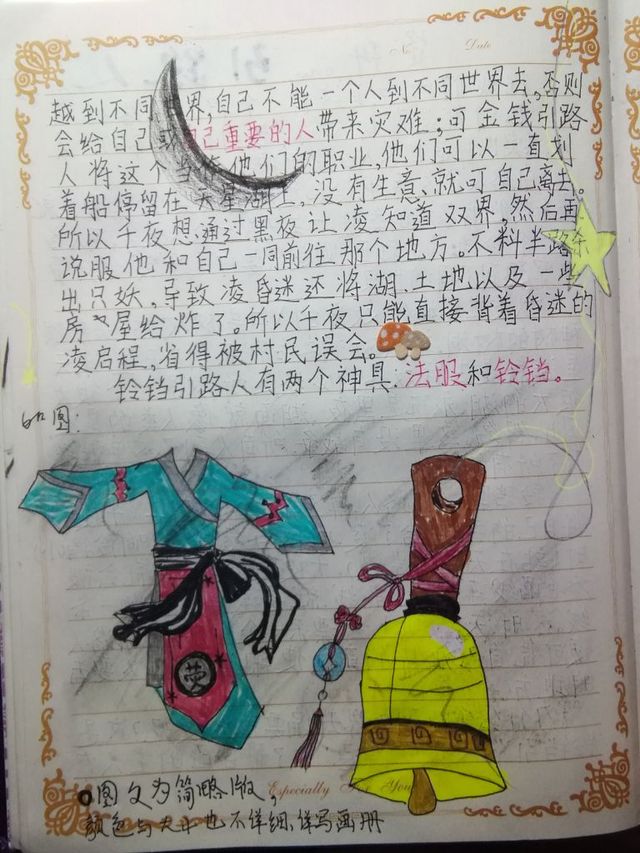 No
Date
越到不同世界,自己不能一个人到不同世界去,否则
会给自己或自己重要的人带来灾难;可金钱引路
人将这个当作他们的职业,他们可以一直划
着船停留在天星湖上,没有生意、就可自己离去。
所以千夜想通过黑夜让凌知道双界,然后再
说服他和自己一同前往那个地方。不料半路杀
出只妖,导致凌昏迷还将湖、土地以及一些
房屋给炸了。所以千夜只能直接背着昏迷的
凌启程,省得被村民误会。
铃铛引路人有两个神具:法服和铃铛。
如图:
图文为简略版,
Especially You
颜色与大小也不详细,详写画册